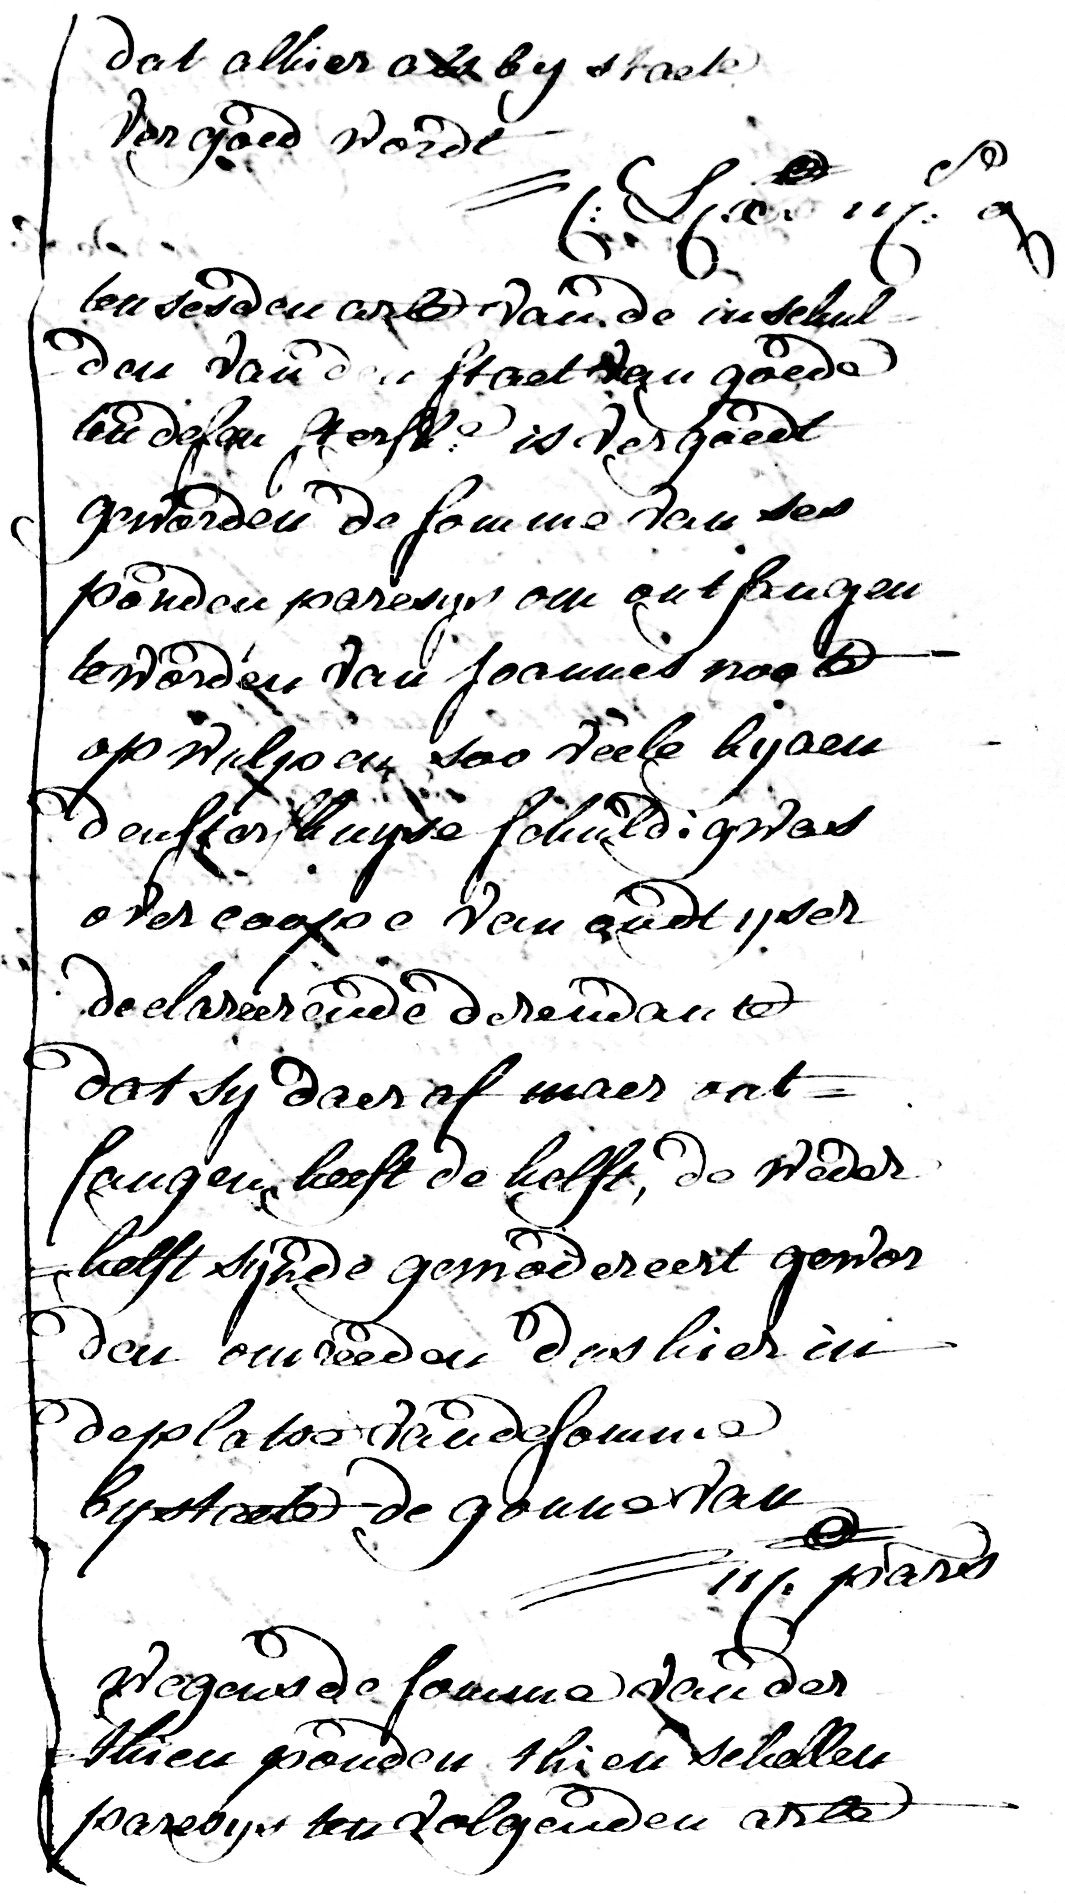 dat alhier als by staete
vergoed wordt
ten sesden arle van de inschul-
den van den staet van goede
ten desen sterfh.e is vergoedt
geworden de somme van ses
ponden paresys om ontfangen
te worden van Joannes noote
op wulpen soo veele hy aen
den sterfhuyse schuldig was
over coope van oudt yser
declareerende de rendante
dat sy daer af maer ont=
fangen heeft de helft, de weder
helft synde gemodereert gewor
den om reeden dus hier in
de plaetse van de somme
by staete de gonne van
iij. pars
wegens de somme van der
thien ponden thien schellen
paresys ten volgenden arle